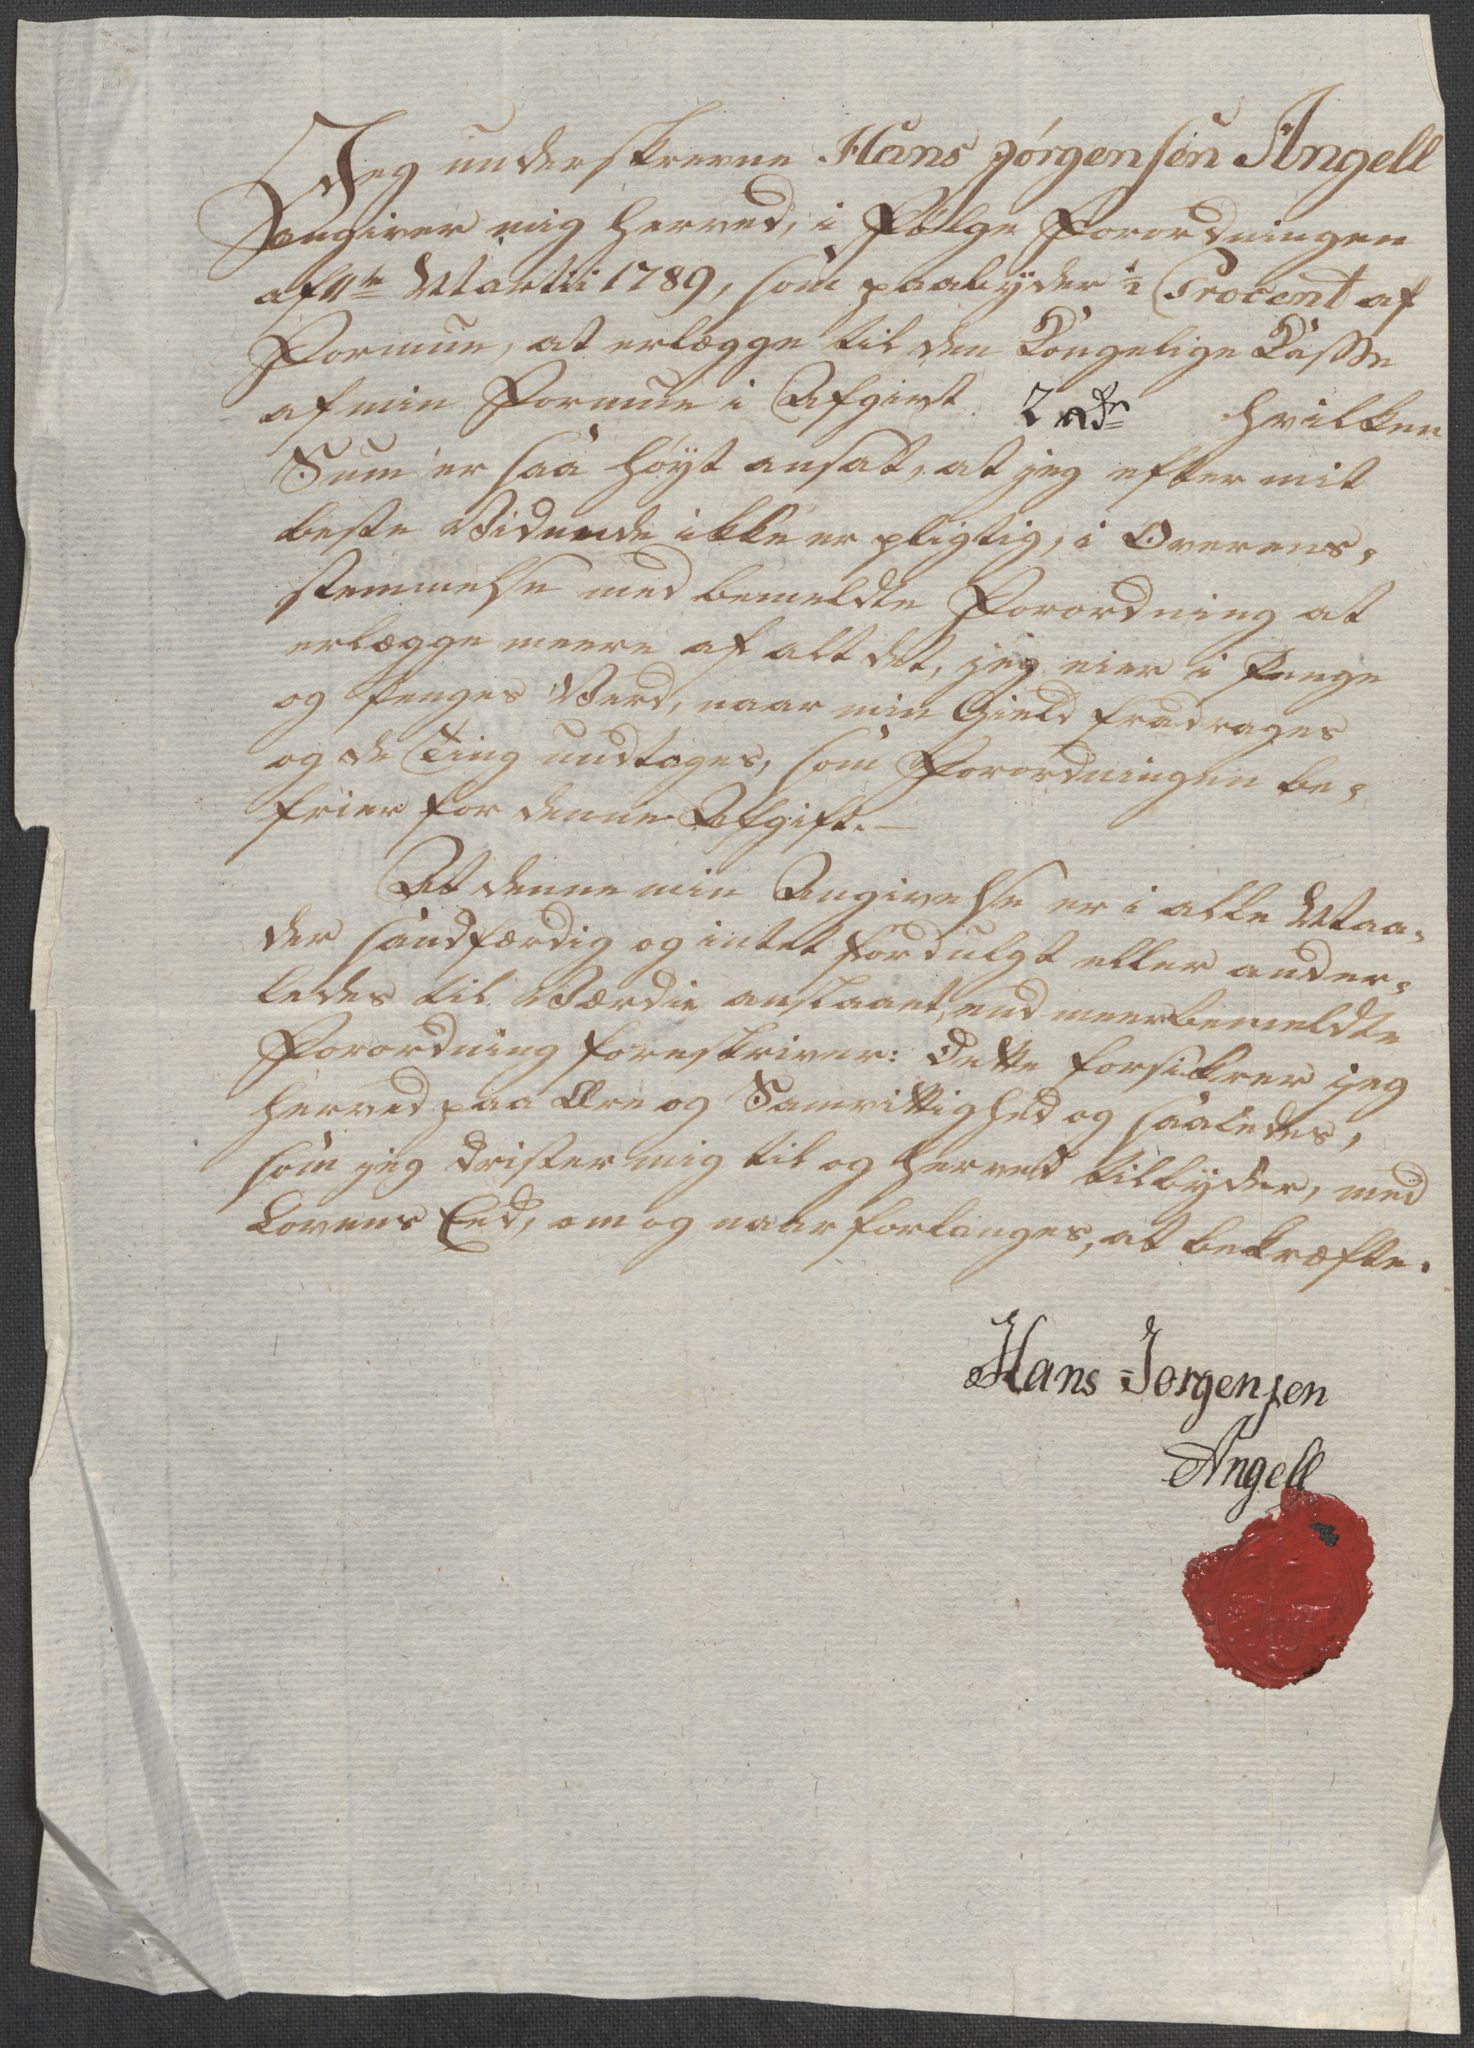 Jeg underskrevne Hans Jørgensen Angell
angiver mig herved, i Følge Forordningen
af 11te Martii 1789, som paabyder ½ Procent af
Formue, at erlægge til den Kongelige Kasse
af min Formue i Afgivt 2 rdr hvilken
Sum er saa høyt ansatt, at jeg efter mit
beste Vidende ikke er pligtig, i Overens,
stemmelse med bemeldte Forordning at
erlægge meere af alt det, jeg eier i Penge
og Penges Verd, naar min Gield fradrages
og de Ting undtages, som Forordningen be,
frier for denne Afgift. —
At denne min Angivelse er i alle Maa,
der sandfærdig og intet fordulgt eller ander,
ledes til Værdie anslaaet, end meerbemeldte
Forordning foreskriver: Dette forsikrer jeg
herved paa Ære og Samvittighed og saaledes,
som jeg drister mig til og herved tilbyder, med
Lovens Eed, om og naar forlanges, at bekræfte.
Hans Jørgensen
Angell